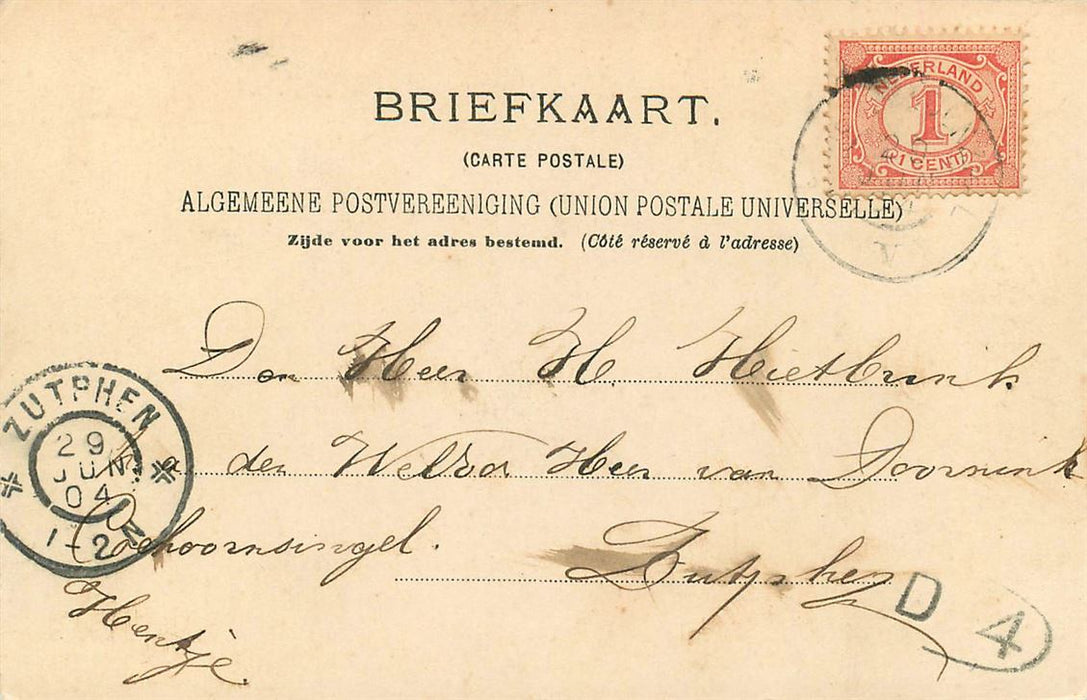 BRIEFKAART.
(CARTE POSTALE)
ALGEMEENE POSTVEREENIGING (UNION POSTALE UNIVERSELLE)
Zijde voor het adres bestemd. (Côté réservé à l'adresse)
NEDERLAND
1
(1 CENT)
Den Heer H. Hietbrink
den Heer van Doornink
Coehoornsingel.
Zutphen
Hentje
ZUTPHEN
29
JUN
04
1-2 N
D 4